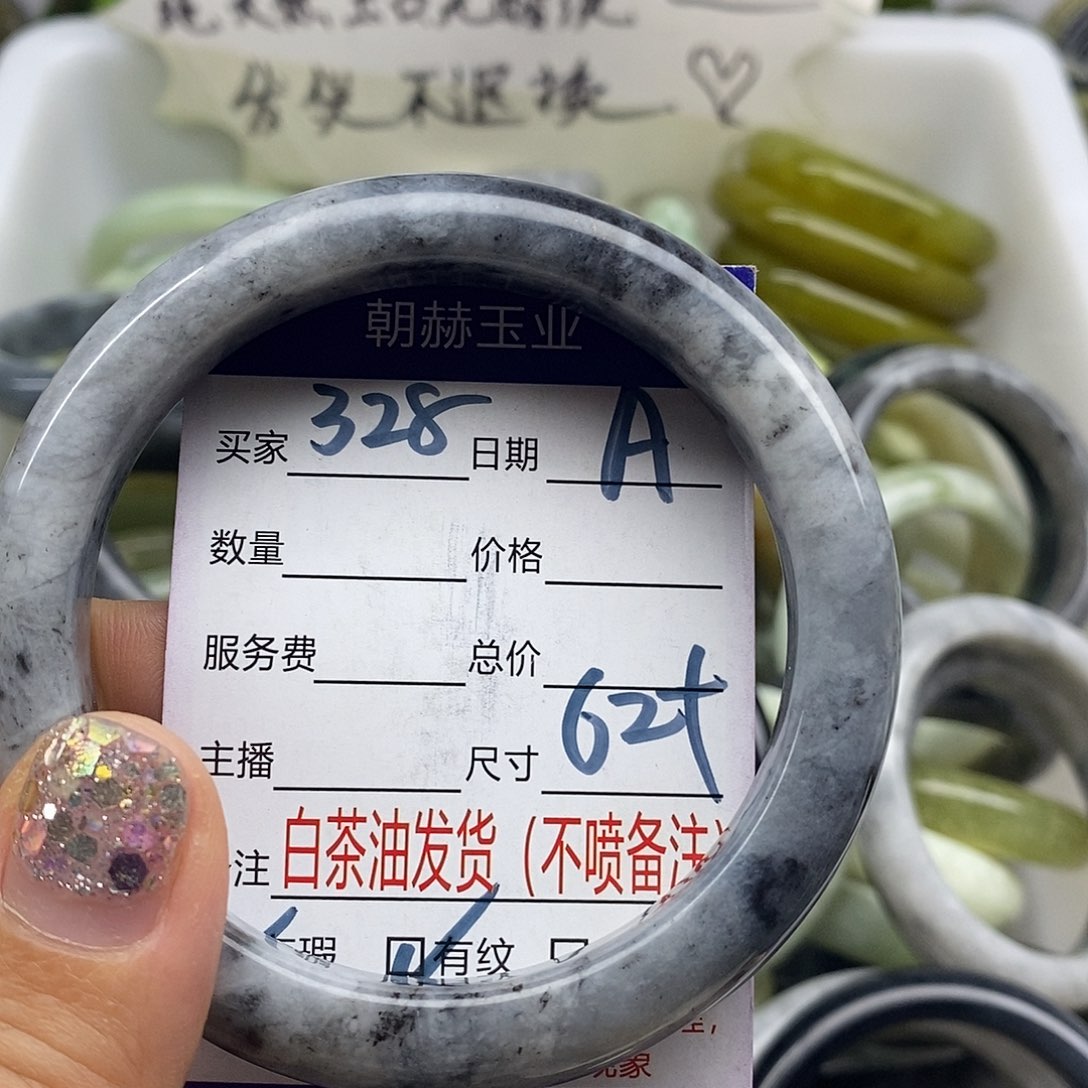 售出不退换
朝赫玉业
买家 328 日期 A
数量 价格
服务费 总价
主播 尺寸 62+
注 白茶油发货（不喷备注）
瑕 有纹